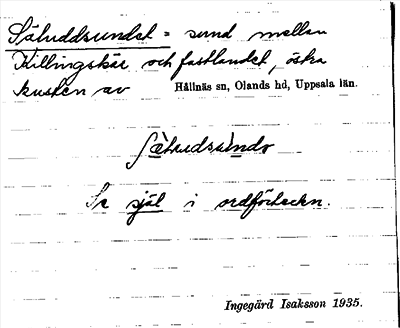 Säluddsundet = sund mellan
Killingskär och fastlandet, östra
kusten av Hållnäs sn, Olands hd, Uppsala län.
Se själ i ordförteckn.
Ingegärd Isaksson 1935.